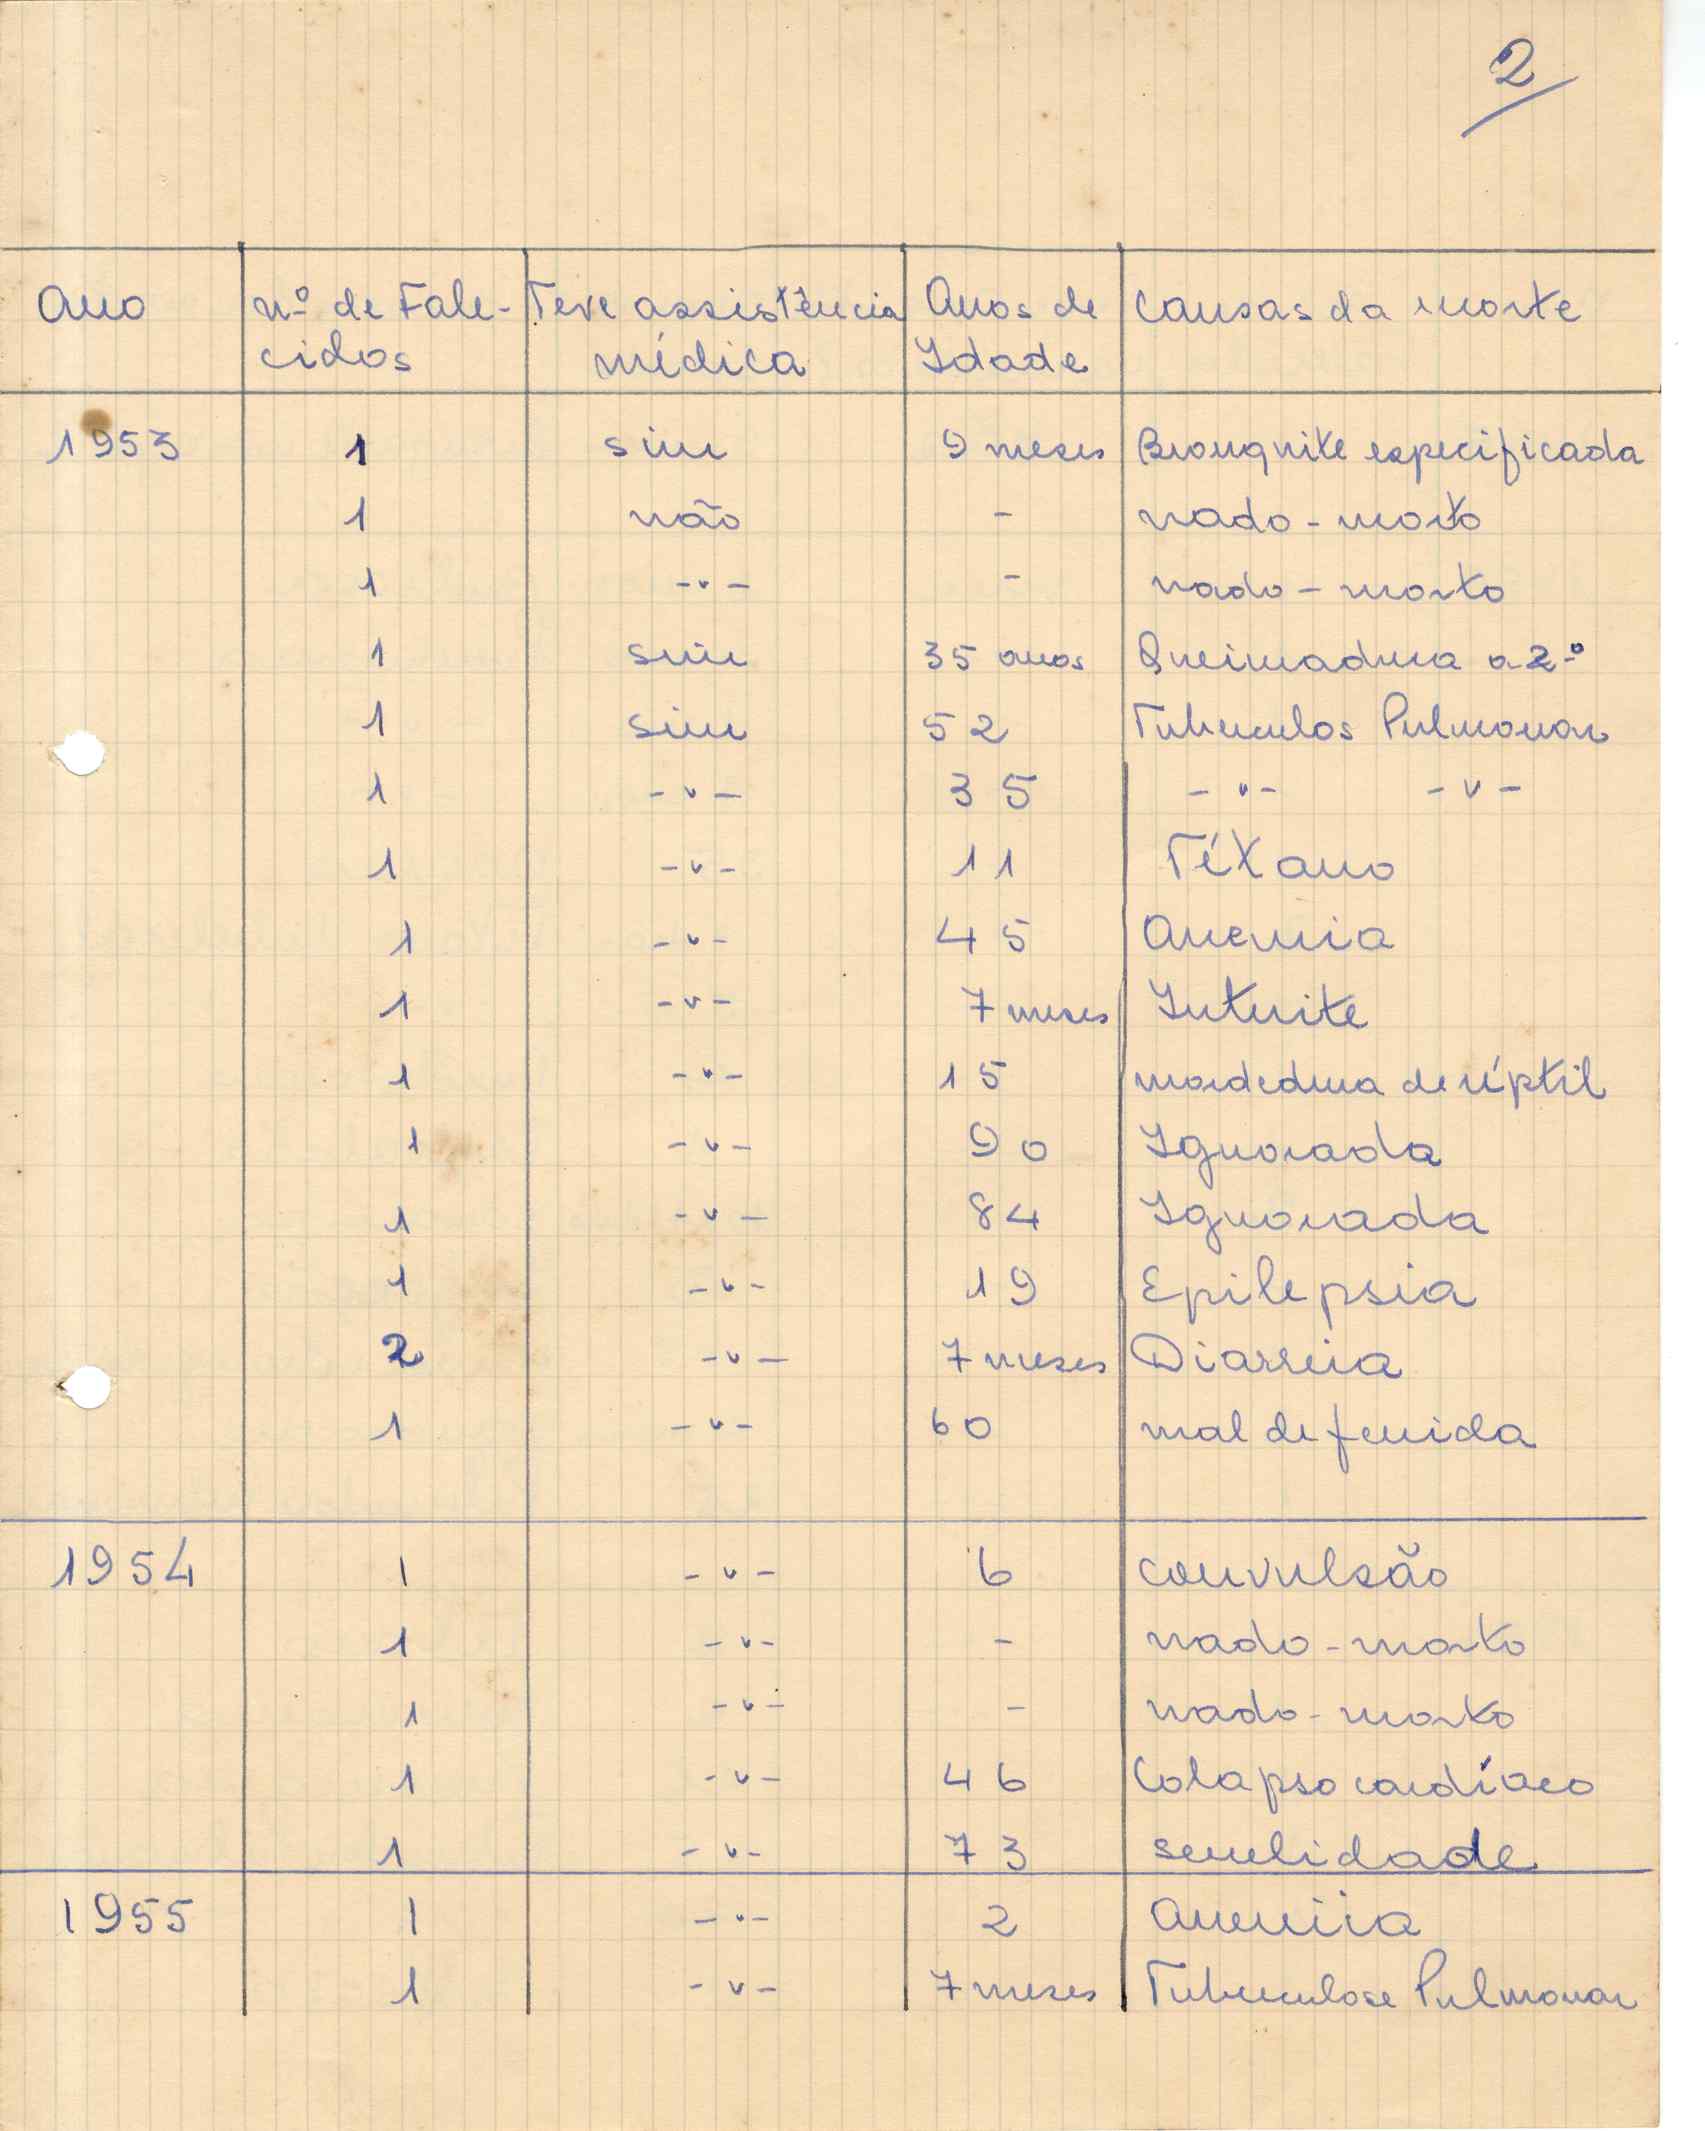 2
Ano nº de Fale- Teve assistência Anos de Causas da morte
cidos médica Idade
1953 1 sim 9 meses Bronqnite especificada
1 não - nado-morto
1 -"- - nado-morto
1 sim 35 anos Queimadura a 2º
1 sim 52 Tuberculos Pulmonar
1 -"- 35 -"- -"-
1 -"- 11 Tétano
1 -"- 45 Anemia
1 -"- 7 meses Interite
1 -"- 15 mordedura de réptil
1 -"- 90 Ignorada
1 -"- 84 Ignorada
1 -"- 19 Epilepsia
2 -"- 7 meses Diarreia
1 -"- 60 mal defenida
1954 1 -"- 6 convulsão
1 -"- - nado-morto
1 -"- - nado-morto
1 -"- 46 Colapso cardíaco
1 -"- 73 senelidade
1955 1 -"- 2 Anemia
1 -"- 7 meses Tuberculose Pulmonar